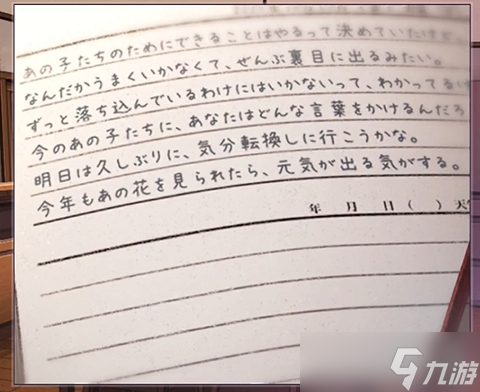 あの子たちのためにできることはやるって決めていたけど
なんだかうまくいかなくて、ぜんぶ裏目に出るみたい。
ずっと落ち込んでいるわけにはいかないって、わかってる
今のあの子たちに、あなたはどんな言葉をかけるんだろ
明日は久しぶりに、気分転換しに行こうかな。
今年もあの花を見られたら、元気が出る気がする。
年 月 日( ) 天気
九游